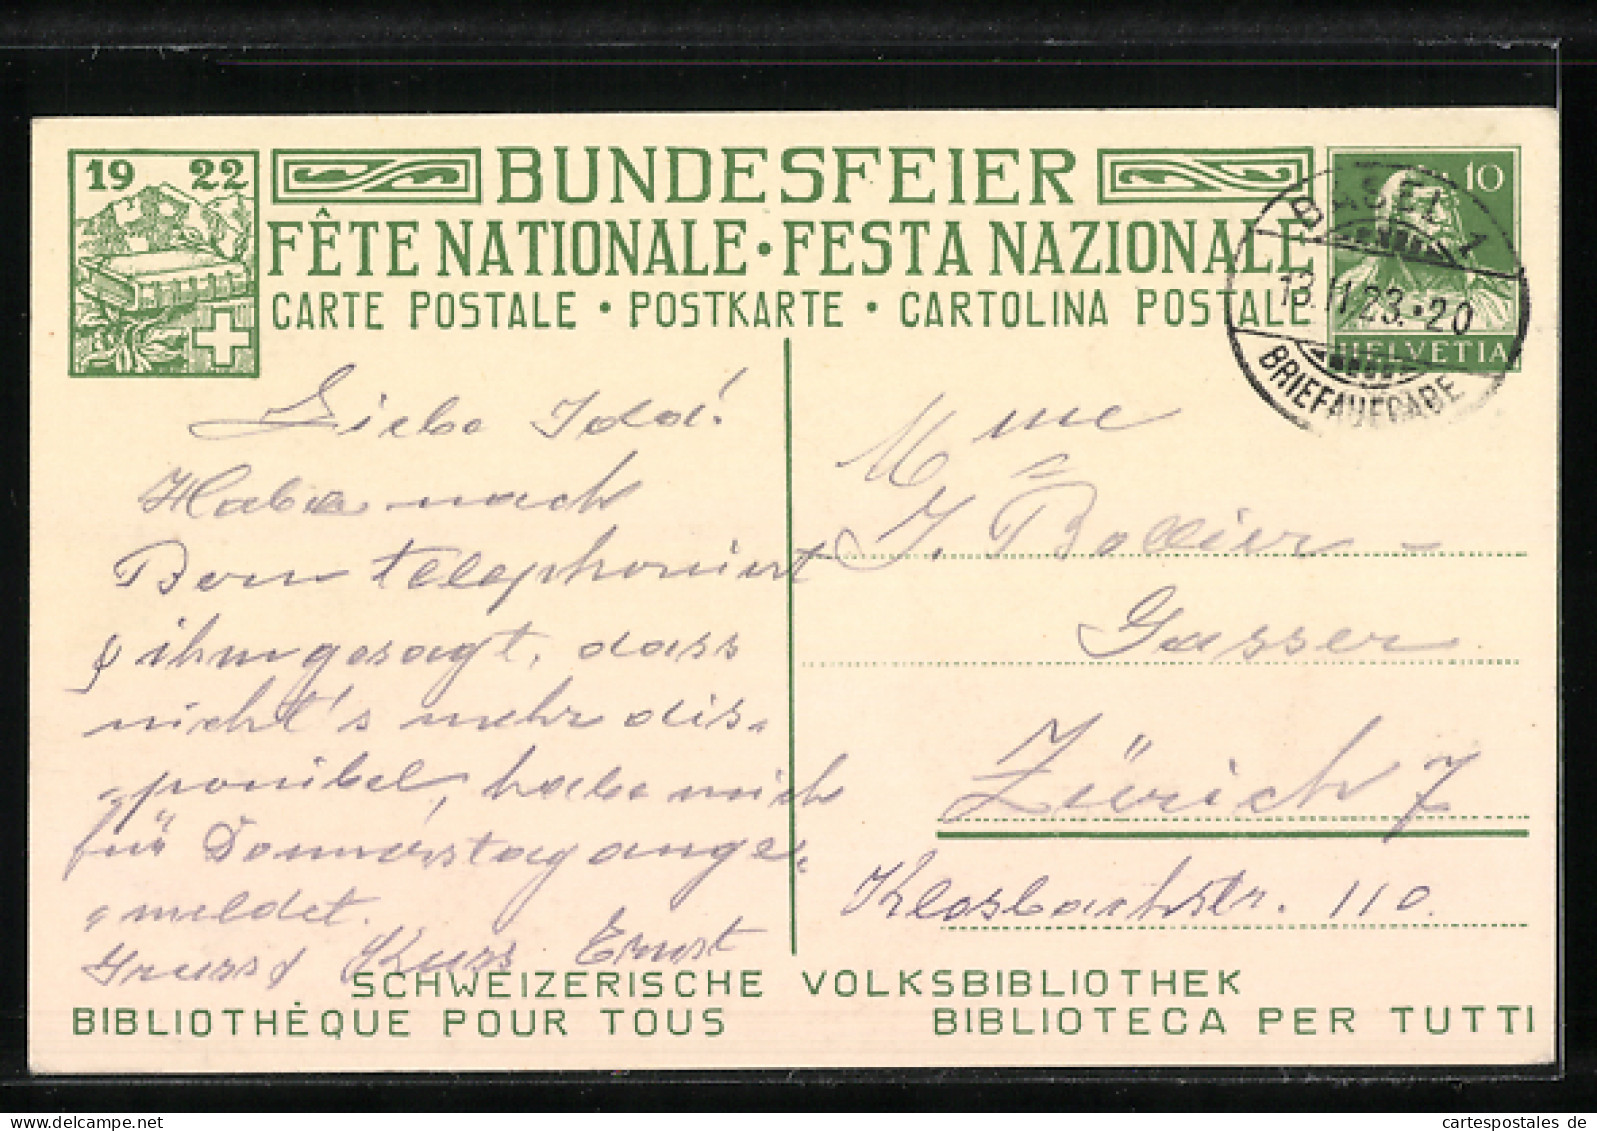 19 22
BUNDESFEIER
FÊTE NATIONALE • FESTA NAZIONALE
CARTE POSTALE • POSTKARTE • CARTOLINA POSTALE
10
HELVETIA
BASEL 1
13.II.23.•20
BRIEFAUFGABE
Liebe Ida!
Habe nach
Bern telephoniert
& ihm gesagt, dass
nicht's mehr dis-
ponibel, habe mich
für Donnerstag ange-
meldet.
Gruss & Kuss Ernst
Mme
J. Bollier -
Gasser
Zürich 7
Klosbachstr. 110.
SCHWEIZERISCHE VOLKSBIBLIOTHEK
BIBLIOTHÈQUE POUR TOUS BIBLIOTECA PER TUTTI
cartespostales de